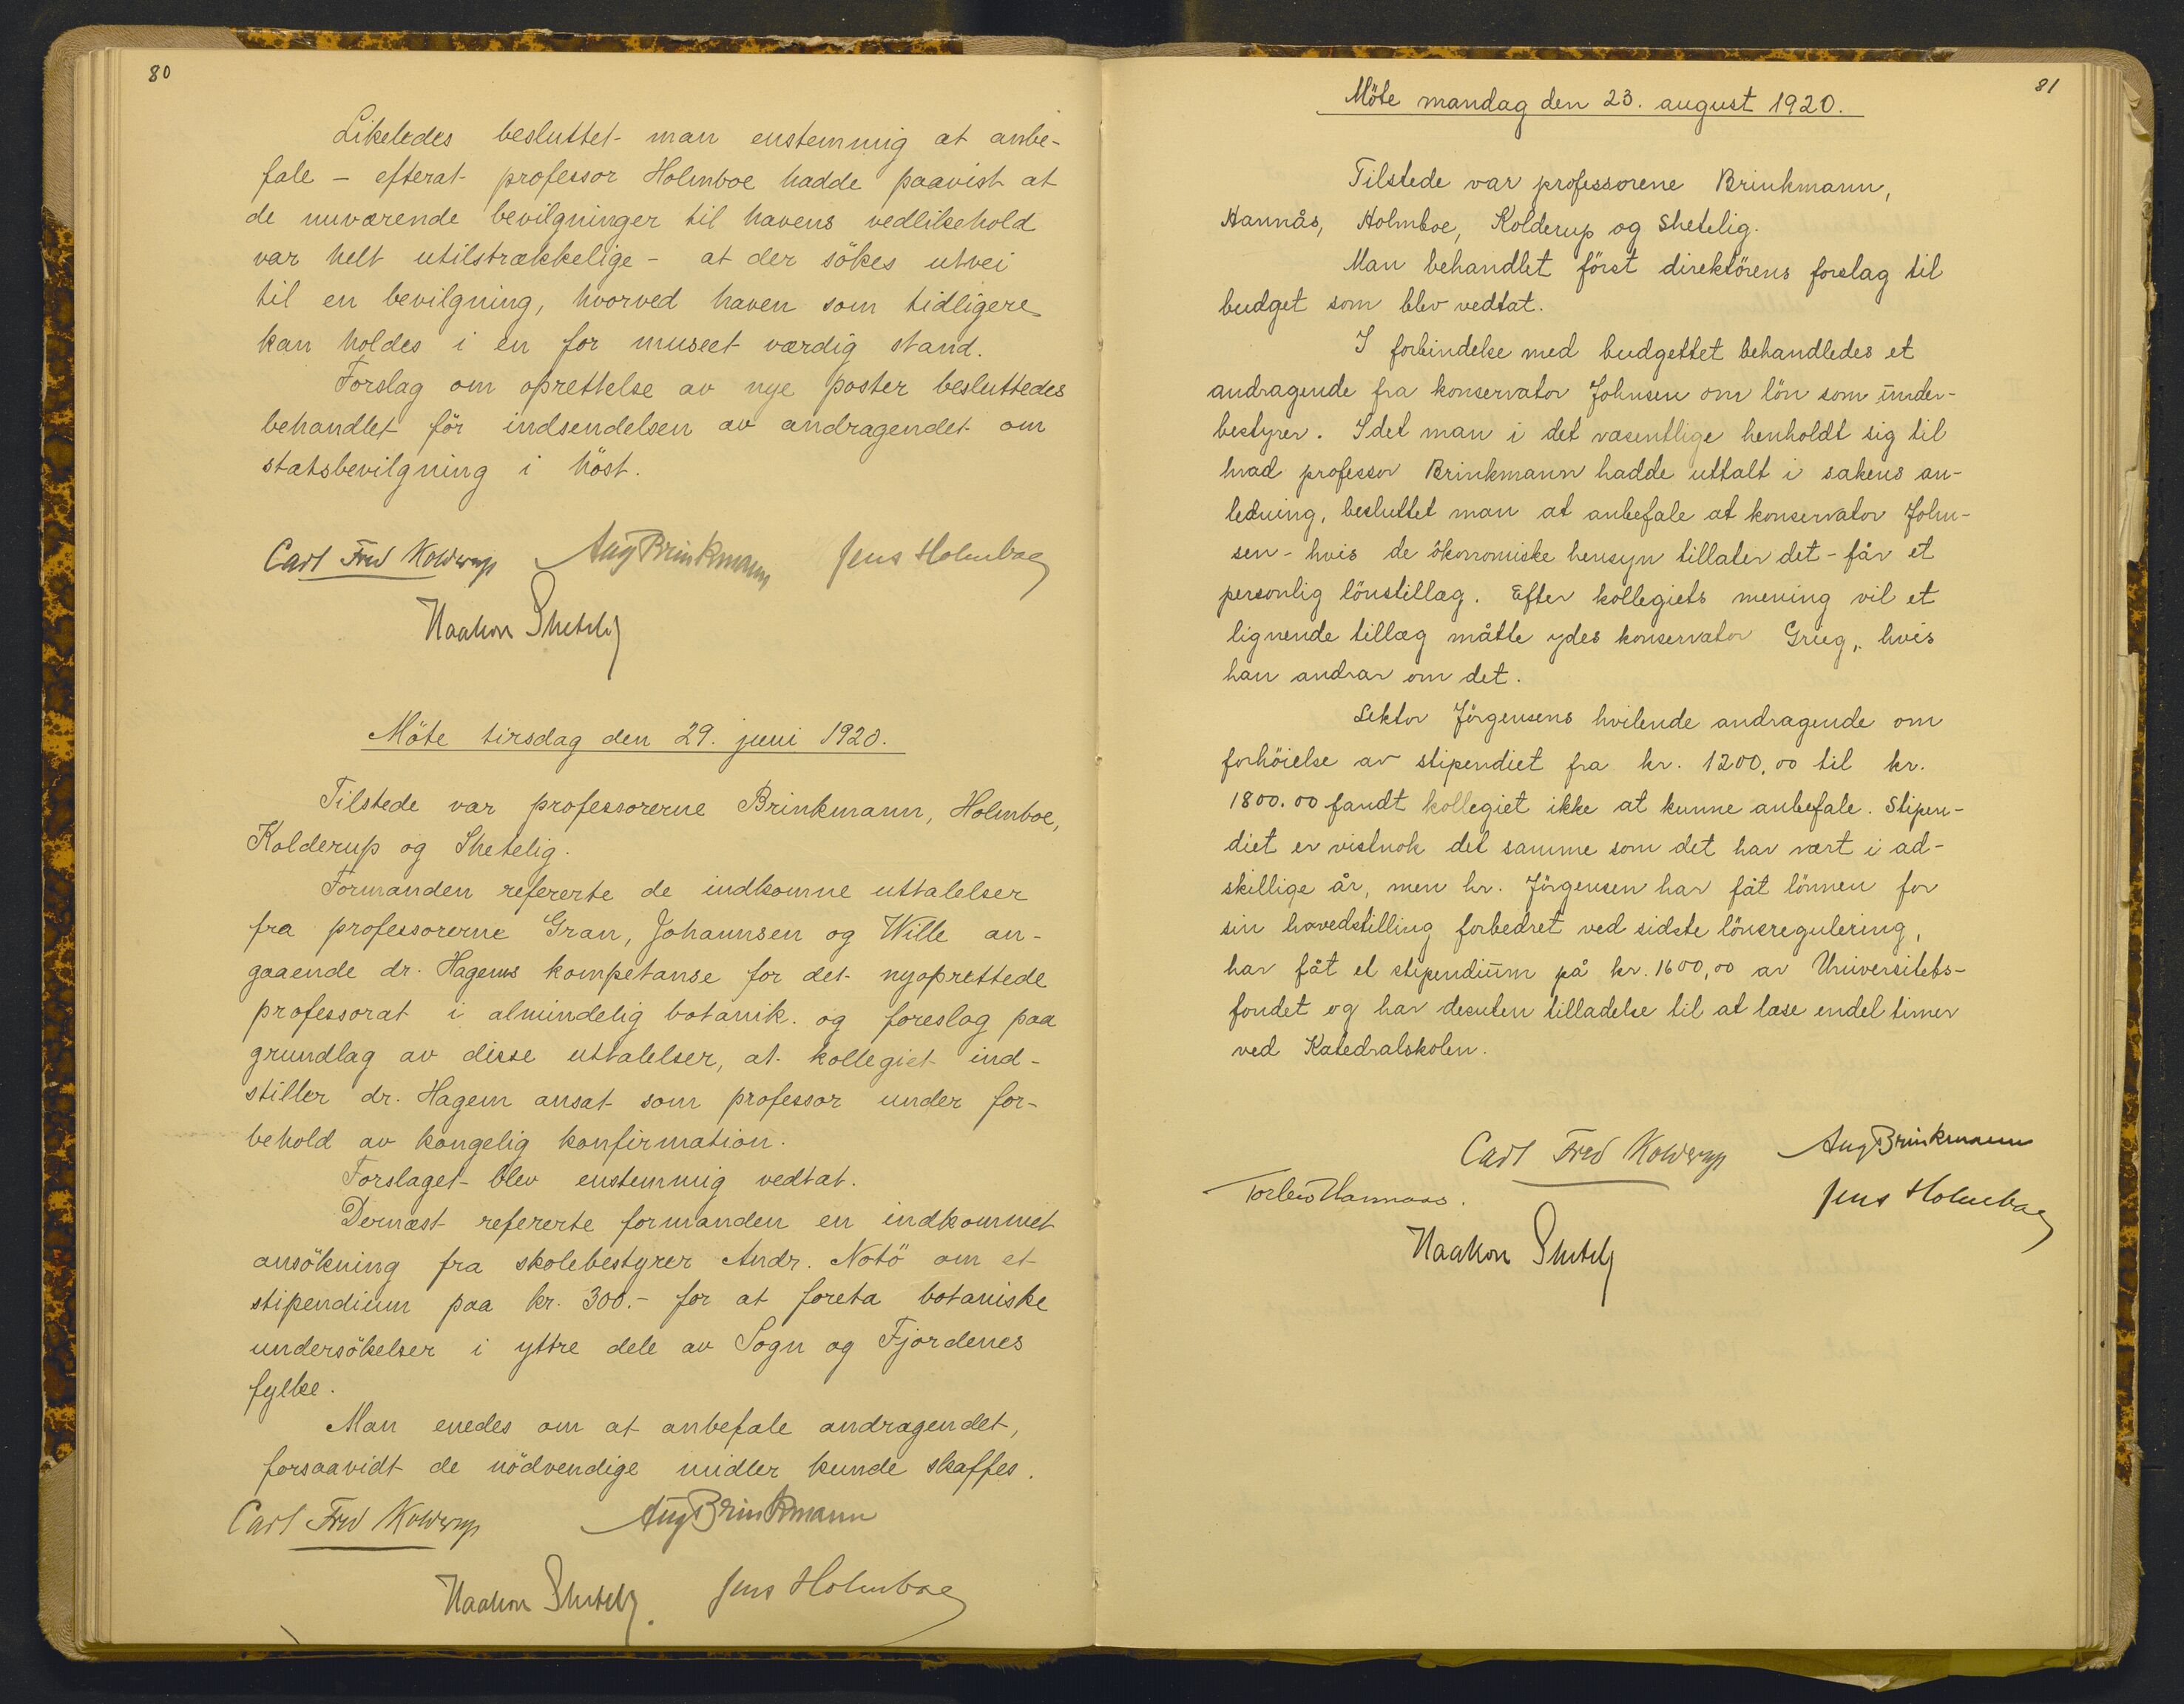 80
Likeledes besluttet man enstemmig at anbe-
fale - efterat professor Holmboe hadde paavist at
de nuværende bevilgninger til havens vedlikehold
var helt utilstrækkelige - at der sökes utvei
til en bevilgning, hvorved haven som tidligere
kan holdes i en for museet værdig stand.
Forslag om oprettelse av nye poster besluttedes
behandlet för indsendelsen av andragendet om
statsbevilgning i höst.
Carl Fred Kolderup Aug Brinkmann Jens Holmboe
Haakon Shetelig
Möte tirsdag den 29. juni 1920.
Tilstede var professorerne Brinkmann, Holmboe,
Kolderup og Shetelig.
Formanden refererte de indkomne uttalelser
fra professorerne Gran, Johannsen og Wille an-
gaaende dr. Hagems kompetanse for det nyoprettede
professorat i almindelig botanik. og foreslog paa
grundlag av disse uttalelser, at kollegiet ind-
stiller dr. Hagem ansat som professor under for-
behold av kongelig konfirmation.
Forslaget blev enstemmig vedtat.
Dernæst refererte formanden en indkommet
ansökning fra skolebestyrer Andr. Notö om et
stipendium paa kr. 300.- for at foreta botaniske
undersökelser i yttre dele av Sogn og Fjordenes
fylke.
Man enedes om at anbefale andragendet,
forsaavidt de nödvendige midler kunde skaffes.
Carl Fred Kolderup Aug Brinkmann
Haakon Shetelig. Jens Holmboe
81
Möte mandag den 23. august 1920.
Tilstede var professorene Brinkmann,
Hannås, Holmboe, Kolderup og Shetelig.
Man behandlet först direktörens forslag til
budget som blev vedtat.
I forbindelse med budgettet behandledes et
andragende fra konservator Johnsen om lön som under-
bestyrer. Idet man i det væsentlige henholdt sig til
hvad professor Brinkmann hadde uttalt i sakens an-
ledning, besluttet man at anbefale at konservator John-
sen - hvis de ökonomiske hensyn tillater det - får et
personlig lönstillæg. Efter kollegiets mening vil et
lignende tillæg måtte ydes konservator Grieg, hvis
han andrar om det.
Lektor Jörgensens hvilende andragende om
forhöielse av stipendiet fra kr. 1200,00 til kr.
1800.00 fandt kollegiet ikke at kunne anbefale. Stipen-
diet er vistnok det samme som det har vært i ad-
skillige år, men hr. Jörgensen har fåt lönnen for
sin hovedstilling forbedret ved sidste lönsregulering,
har fåt et stipendium på kr. 1600,00 av Universitets-
fondet og har desuten tilladelse til at læse endel timer
ved Katedralskolen.
Carl Fred Kolderup Aug Brinkmann
Torleiv Hannaas. Jens Holmboe
Haakon Shetelig